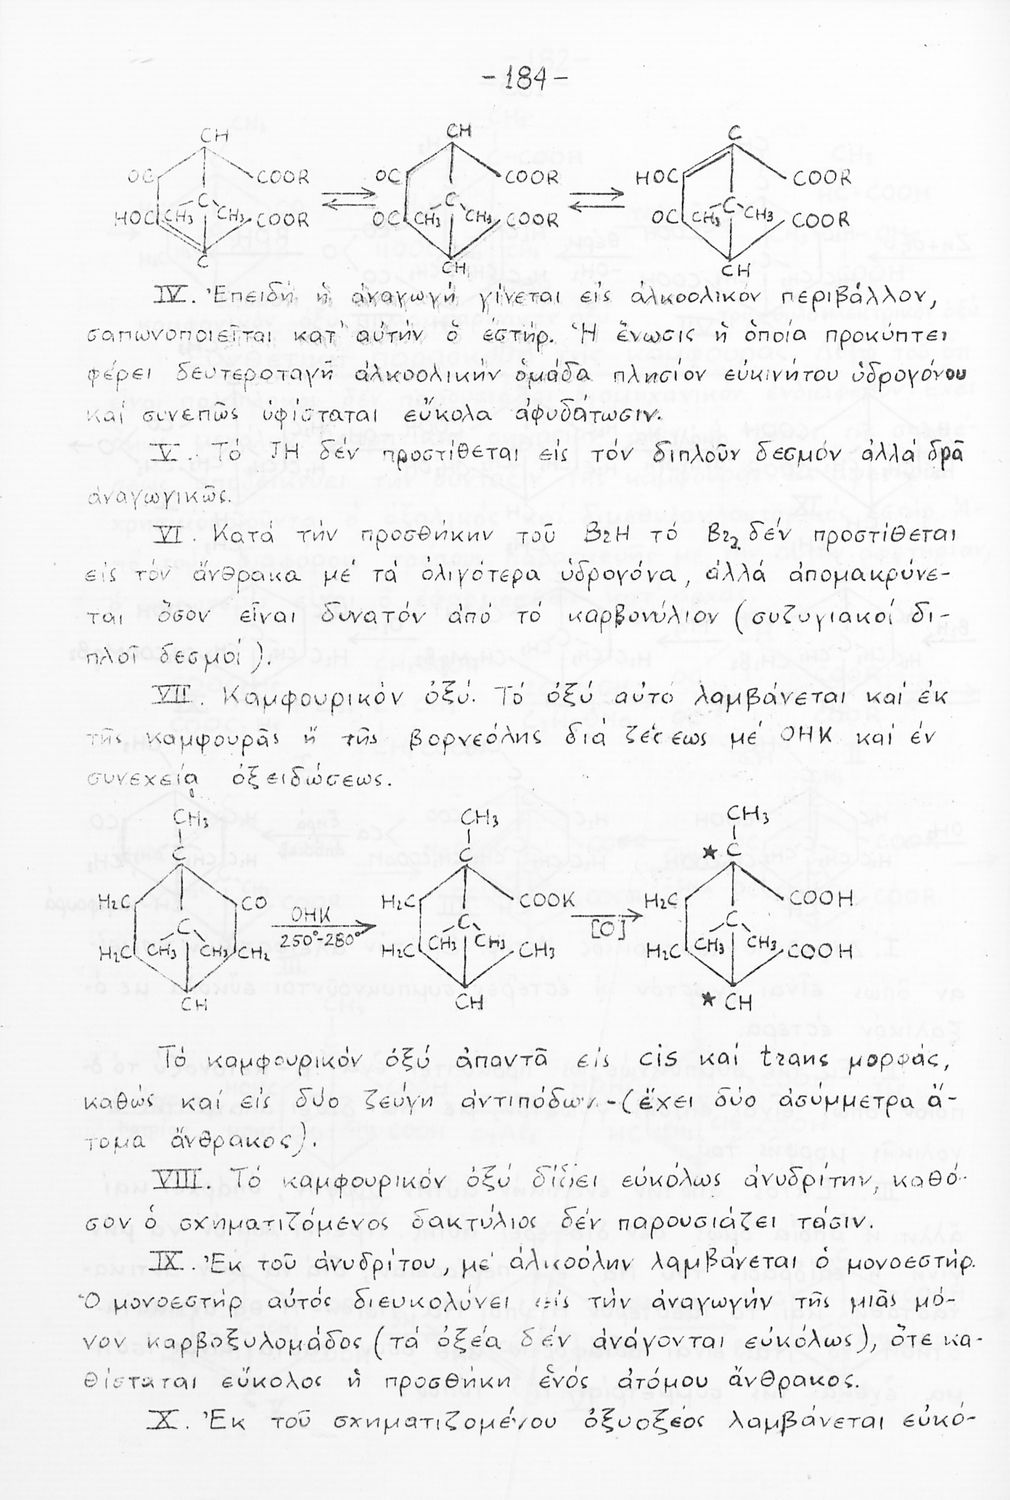 -184-
CH CH C
OC COOR OC COOR HOC COOR
C C C
HOC CH3 CH3 COOR OC CH3 CH3 COOR OC CH3 CH3 COOR
C CH CH
IV. Ἐπειδή ἡ ἀναγωγή γίνεται εἰς ἀλκοολικόν περιβάλλον,
σαπωνοποιεῖται κατ' αὐτήν ὁ ἐστήρ. Ἡ ἕνωσις ἡ ὁποία προκύπτει
φέρει δευτεροταγῆ ἀλκοολικήν ὁμάδα πλησίον εὐκινήτου ὑδρογόνου
καί συνεπῶς ὑφίσταται εὔκολα ἀφυδάτωσιν.
V. Τό JH δέν προστίθεται εἰς τόν διπλοῦν δεσμόν ἀλλά δρᾶ
ἀναγωγικῶς.
VI. Κατά τήν προσθήκην τοῦ BrH τό Br₂ δέν προστίθεται
εἰς τόν ἄνθρακα μέ τά ὀλιγότερα ὑδρογόνα, ἀλλά ἀπομακρύνε-
ται ὅσον εἶναι δυνατόν ἀπό τό καρβονύλιον (συζυγιακοί δι-
πλοῖ δεσμοί).
VII. Καμφουρικόν ὀξύ. Τό ὀξύ αὐτό λαμβάνεται καί ἐκ
τῆς καμφουρᾶς ἤ τῆς βορνεόλης διά ζέσεως μέ ΟΗΚ καί ἐν
συνεχείᾳ ὀξειδώσεως.
CH3 CH3 CH3
C C ★ C
H2C CO OHK H2C COOK [O] H2C COOH
C 250°-280° C C
H2C CH3 CH3 CH2 H2C CH3 CH3 CH3 H2C CH3 CH3 COOH
CH CH ★ CH
Τό καμφουρικόν ὀξύ ἀπαντᾶ εἰς cis καί trans μορφάς,
καθώς καί εἰς δύο ζεύγη ἀντιπόδων-(ἔχει δύο ἀσύμμετρα ἄ-
τομα ἄνθρακος).
VIII. Τό καμφουρικόν ὀξύ δίδει εὐκόλως ἀνυδρίτην, καθό-
σον ὁ σχηματιζόμενος δακτύλιος δέν παρουσιάζει τάσιν.
IX. Ἐκ τοῦ ἀνυδρίτου, μέ ἀλκοόλην λαμβάνεται ὁ μονοεστήρ.
Ὁ μονοεστήρ αὐτός διευκολύνει εἰς τήν ἀναγωγήν τῆς μιᾶς μό-
νον καρβοξυλομάδος (τά ὀξέα δέν ἀνάγονται εὐκόλως), ὅτε κα-
θίσταται εὔκολος ἡ προσθήκη ἑνός ἀτόμου ἄνθρακος.
X. Ἐκ τοῦ σχηματιζομένου ὀξυοξέος λαμβάνεται εὐκό-